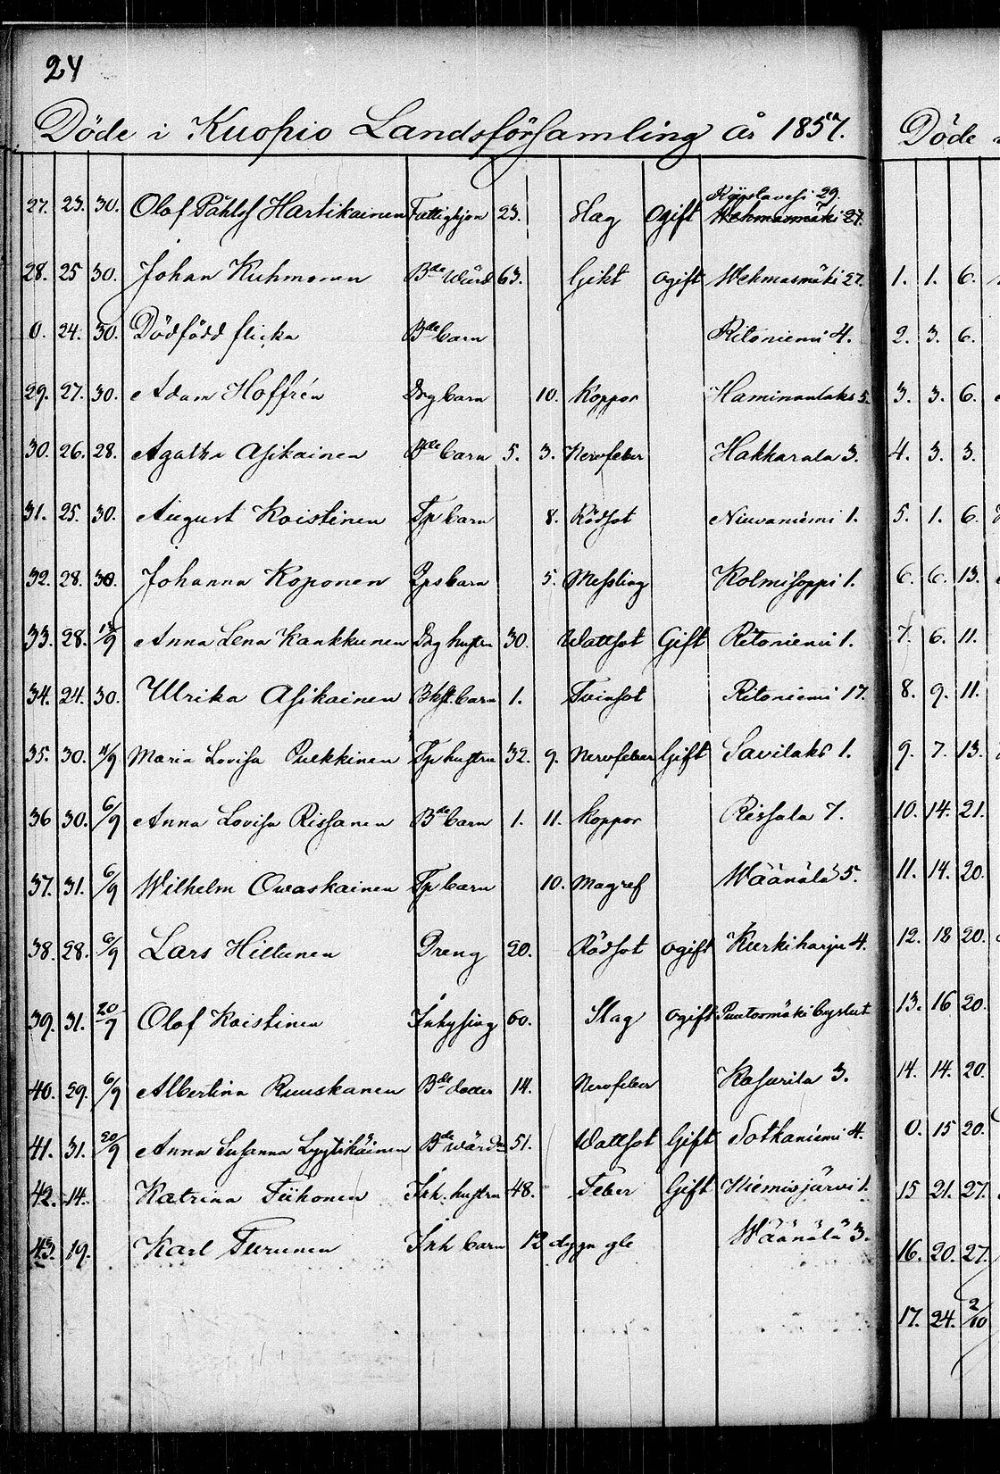 24
Döde i Kuopio Landsförsamling år 1857.
27. 23. 30. Olof Påhlsf Hartikainen Fattighjon 23. Slag Ogift Wehmasmäki 27.
28. 25 30. Johan Kuhmonen Bde Wärd 63. Gikt ogift Wehmasmäki 27.
0. 24. 30. Dödfödd flicka Bde barn Ritoniemi 4.
29. 27. 30. Adam Hoffrén Drg barn 10. Koppor Haminanlaks 5.
30. 26. 28. Agatha Asikainen Bde barn 5. 3. Nervfeber Hakkarala 3.
31. 25. 30. August Koistinen Tp barn 8. Rödsot Niuvaniemi 1.
32. 28. 30. Johanna Koponen barn 5. Messling Kolmisoppi 1.
33. 28. Anna Lena Kankkunen Drg hustru 30. Wattsot Gift Ritoniemi 1.
34. 24. 30. Ulrika Asikainen barn 1. Twinsot Ritoniemi 17.
35. 30. 4/9 Maria Lovisa Pulkkinen Tp hustru 32. 9. Nervfeber Gift Savilaks 1.
36 30. 6/9 Anna Lovisa Rissanen Bde barn 1. 11. Koppor Rissala 7.
37. 31. 6/9 Wilhelm Owaskainen Tp barn 10. Magref Wäänälä 5.
38. 28. 6/9 Lars Hiltunen Dreng 20. Rödsot ogift Kurkiharju 4.
39. 31. 20/9 Olof Koistinen Inhysing 60. Slag ogift
40. 29. 6/9 Albertina Ruuskanen Bde doter 14. Nervfeber Kasurila 3.
41. 31. 20/9 Anna Susanna Lyytikäinen Bde wärd 51. Wattsot Gift Sotkaniemi 4.
42. 14. Katrina Tiihonen Inh. hustru 48. Feber Gift Hiemisjärvi 1.
43. 19. Karl Turunen Inh barn 12 dygn gle Wäänälä 3.
Döde
1. 1. 6.
2. 3. 6.
3. 3. 6.
4. 3. 3.
5. 1. 6.
6. 6. 13.
7. 6. 11.
8. 9. 11.
9. 7. 13.
10. 14. 21.
11. 14. 20.
12. 18 20.
13. 16 20.
14. 14. 20.
0. 15 20.
15 21. 27.
16. 20. 27.
17. 24. 2/10